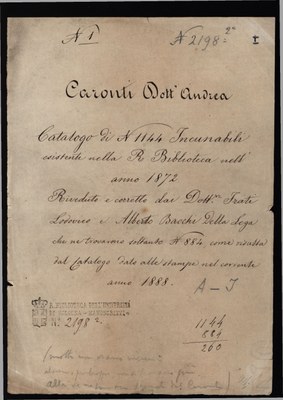 N 1
N 2198 2º
I
Caronti Dott Andrea
Catalogo di N 1144 Incunabili
esistenti nella R Biblioteca nell'
anno 1872
Riveduto e corretto dai Dott.ri Frati
Lodovico e Alberto Bacchi Della Lega
che ne trovarono soltanto N 884, come risulta
dal Catalogo dato alle stampe nel corrente
anno 1888.
A-I
Nº 2198 2
1144
884
260